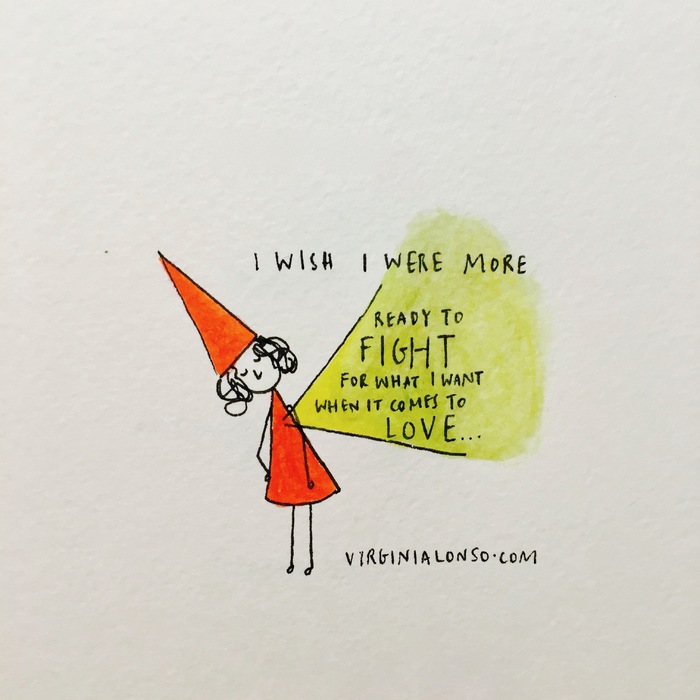 I WISH I WERE MORE
READY TO
FIGHT
FOR WHAT I WANT
WHEN IT COMES TO
LOVE...
VIRGINIALONSO.COM